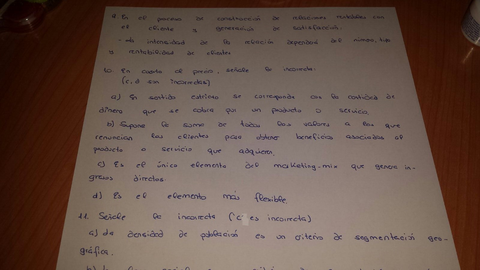 9. En el proceso de construcción de relaciones rentables con
el cliente y generación de satisfacción.
- La intensidad de la relación dependerá del número, tipo
y rentabilidad de cliente
10. En cuanto al precio, señale lo incorrecto:
(c, d son incorrectas)
a) En sentido estricto se corresponde con la cantidad de
dinero que se cobra por un producto o servicio.
b) Supone la suma de todos los valores a los que
renuncian los clientes para obtener beneficios asociados al
producto o servicio que adquieren.
c) Es el único elemento del marketing-mix que genera in-
gresos directos
d) Es el elemento más flexible.
11. Señale la incorrecta (c es incorrecta)
a) La densidad de población es un criterio de segmentación geo-
gráfica.